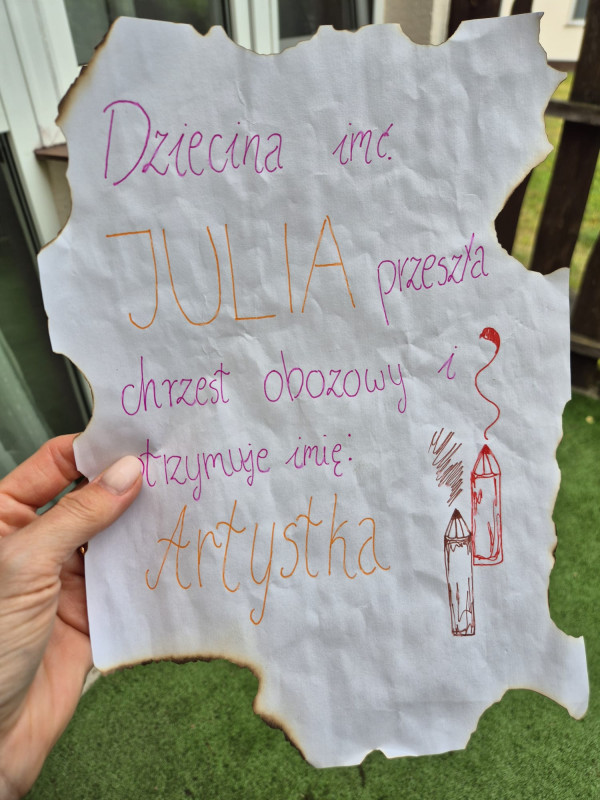 Dziecina imć
JULIA przeszła
chrzest obozowy i
otrzymuje imię:
Artystka